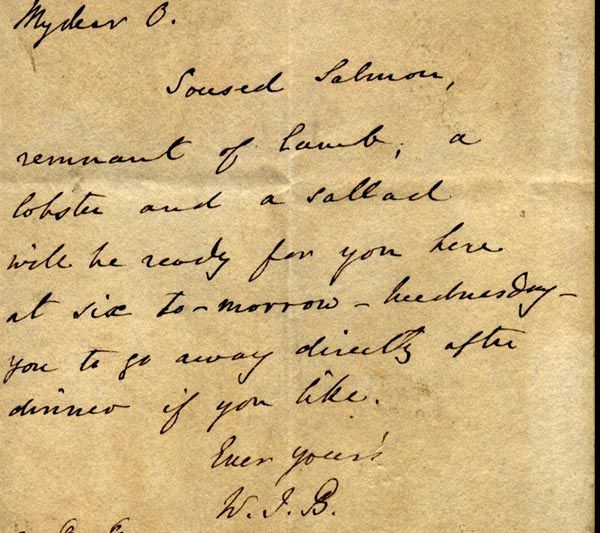 My dear O.
Soused Salmon,
remnant of lamb, a
lobster and a sallad
will be ready for you here
at six to-morrow - Wednesday -
you to go away directly after
dinner if you like.
Ever yours
W. J. B.